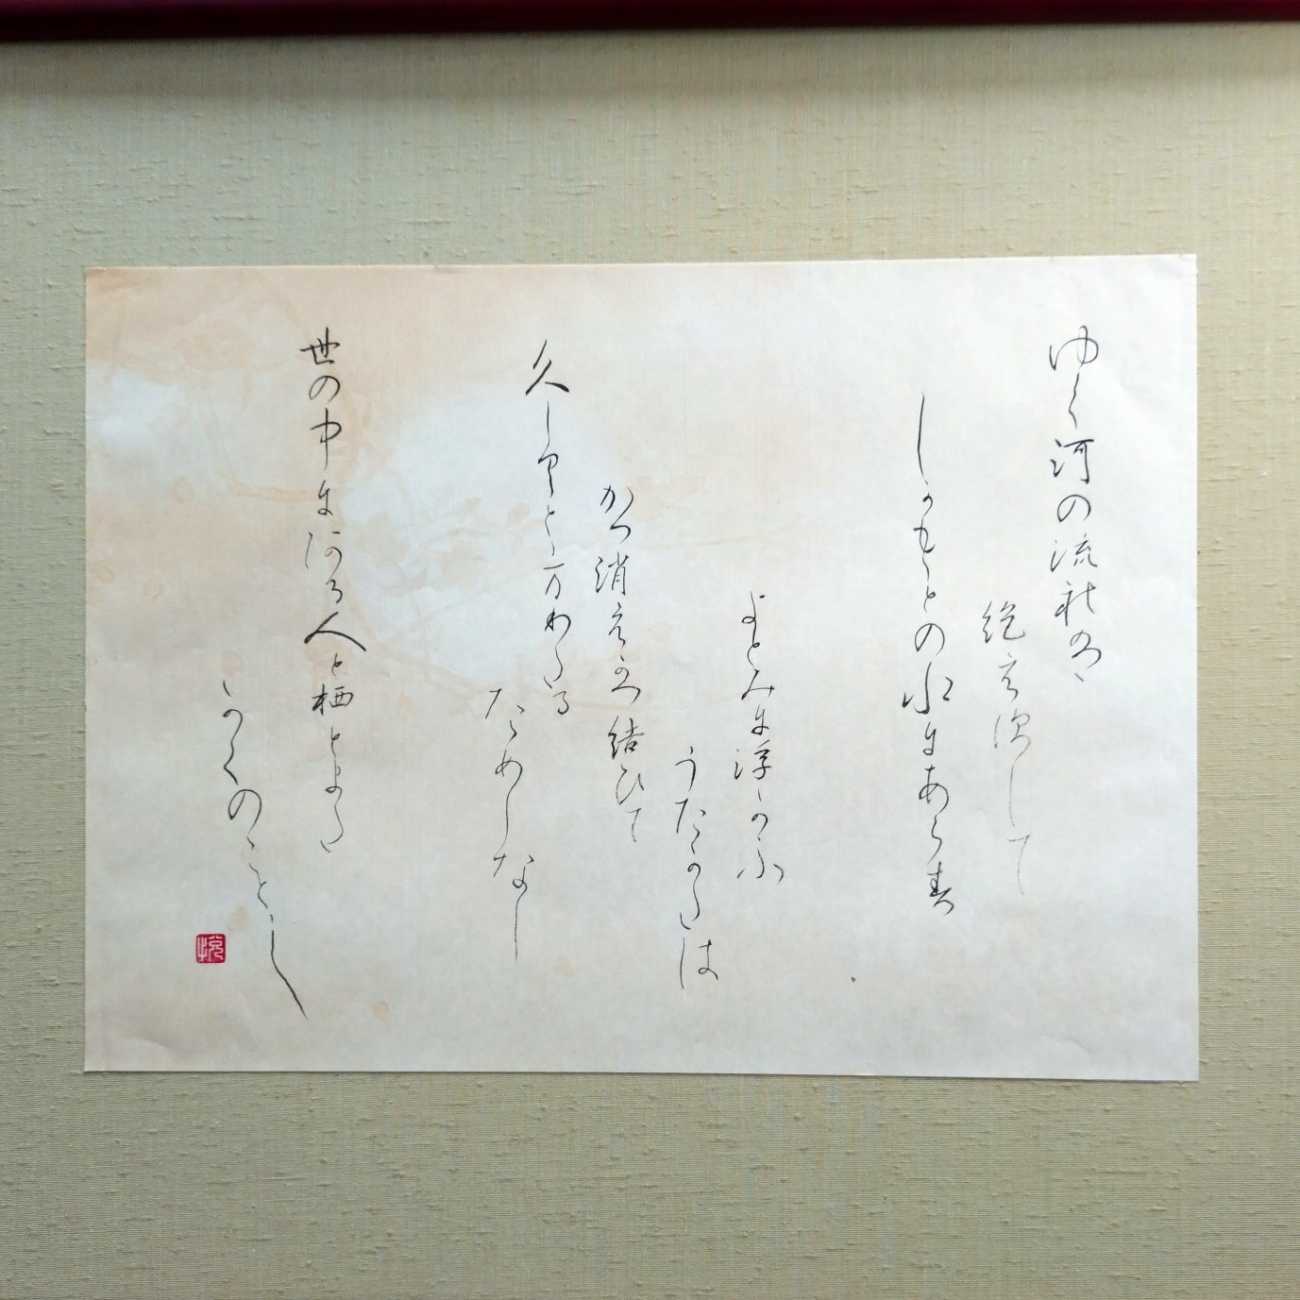 ゆく河の流れは
絶えずして
しかもゝとの水にあらず
よとみに浮かふ
うたかたは
かつ消えかつ結ひて
久しくとゝまりたる
ためしなし
世の中にある人と栖とまた
かくのことし
悦